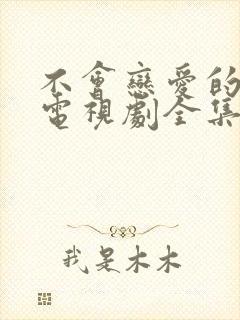 不會戀愛的
電視劇全集
我是木木